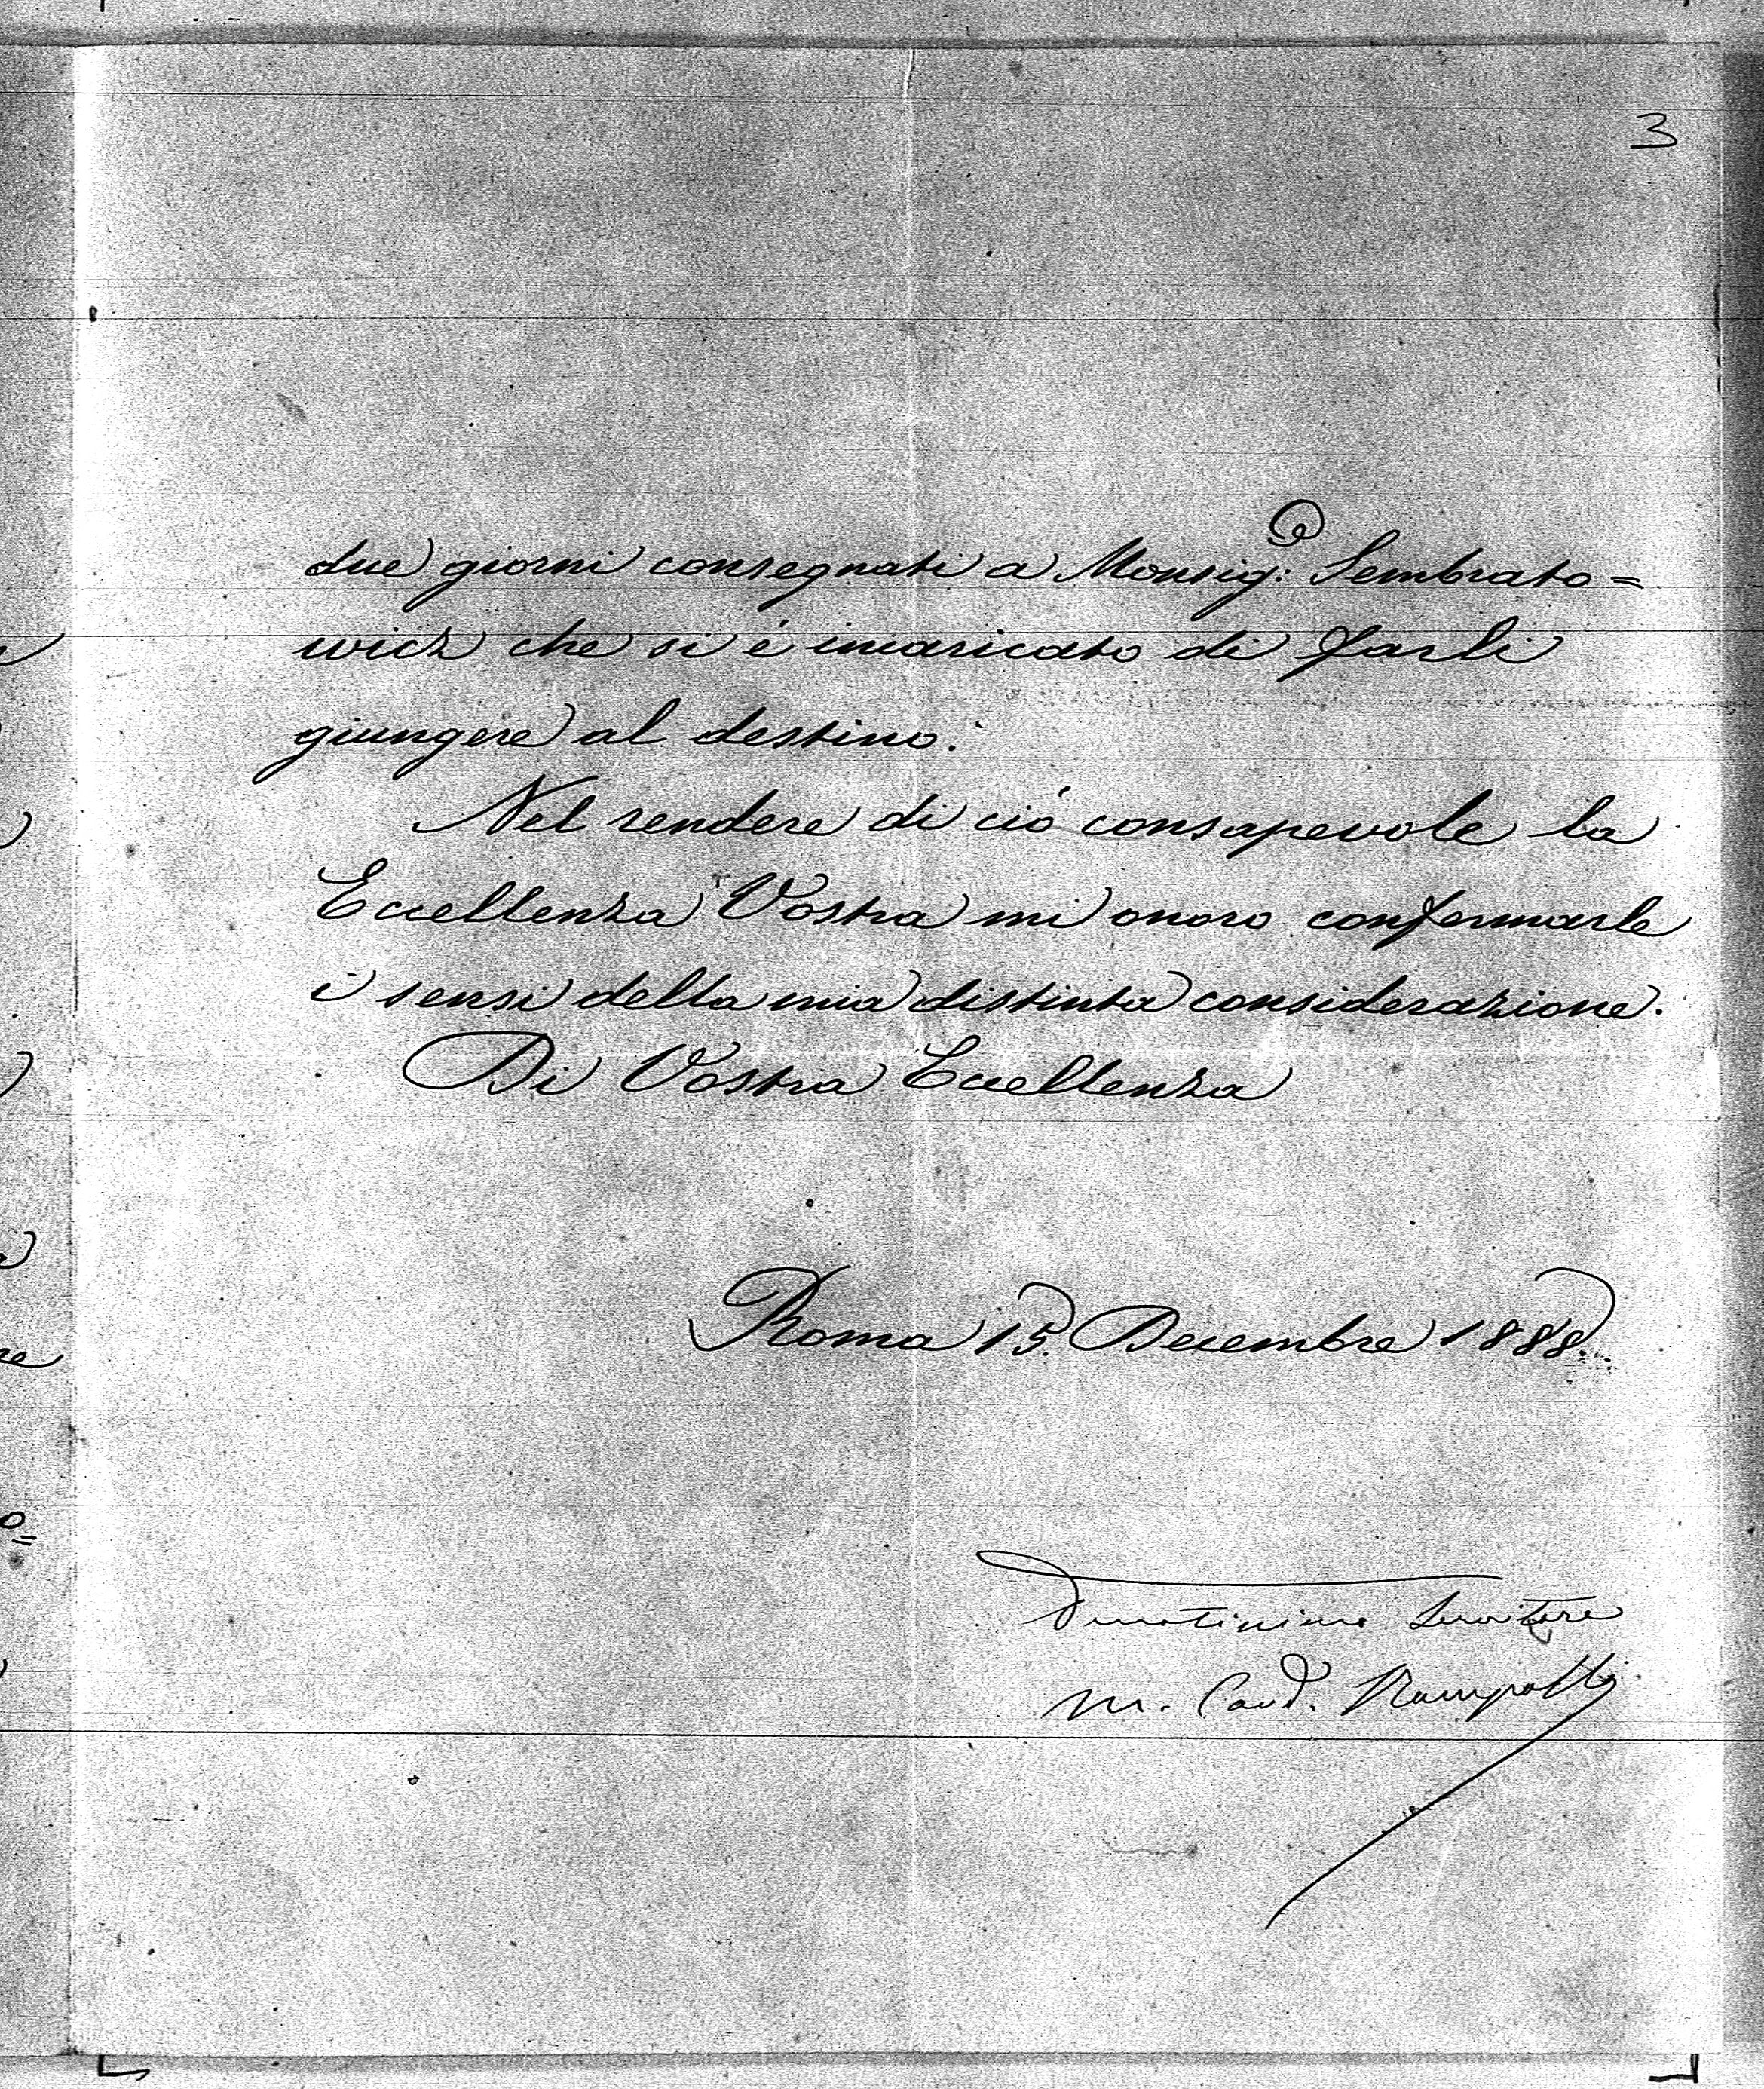 3
due giorni consegnati a Monsig: Sembrato=
wicz che si è incaricato di farli
giungere al destino.
Nel rendere di ciò consapevole la
Eccellenza Vostra mi onoro confermarle
i sensi della mia distinta considerazione.
Di Vostra Eccellenza
Roma 15. Decembre 1888.
Servitore
M. Card. Rampolla